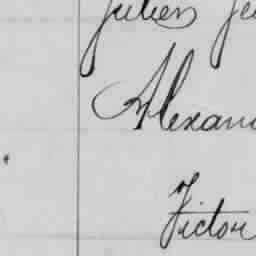 Julien Je
Alexand
Victor